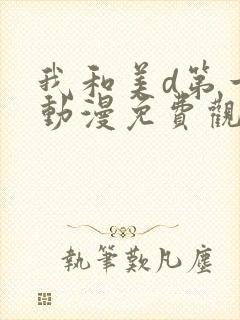 我和美d第一
動漫免費觀
執筆歎凡塵